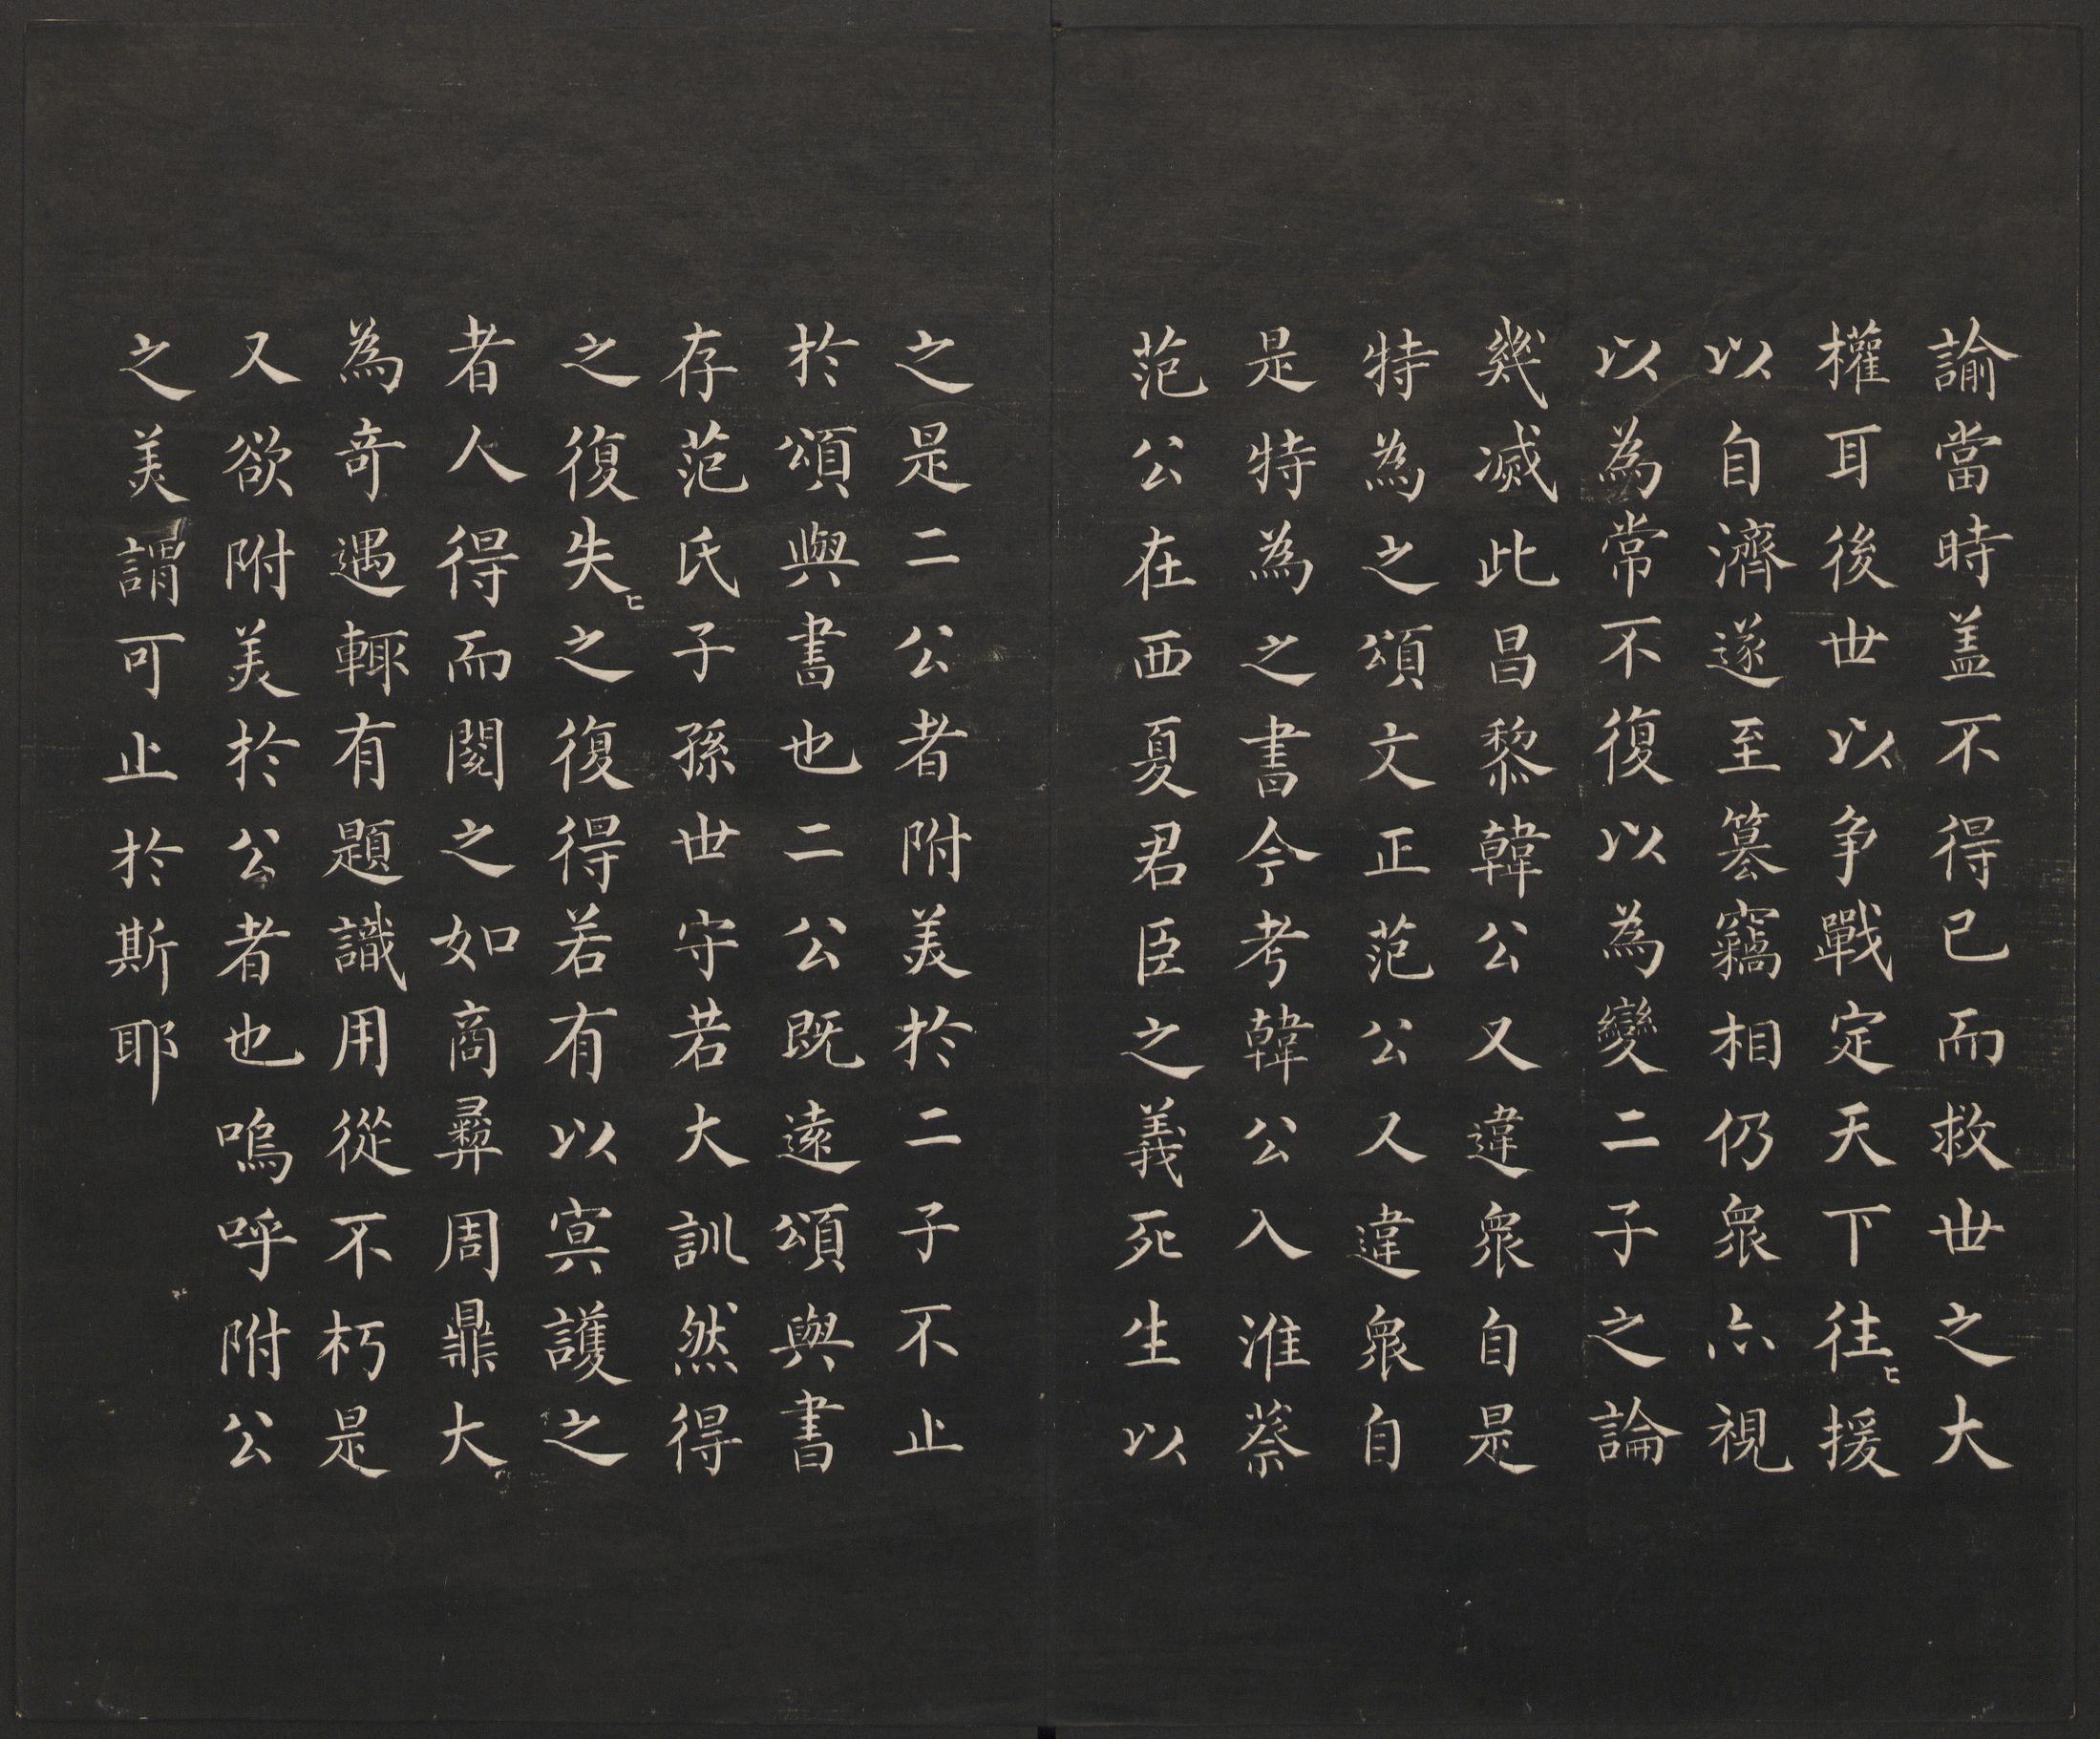 諭當時盖不得已而救世之大
權耳後世以争戰定天下往〻援
以自濟遂至篡竊相仍衆亦視
以為常不復以為變二子之論
幾滅此昌黎韓公又違衆自是
特為之頌文正范公又違衆自
是特為之書今考韓公入淮蔡
范公在西夏君臣之義死生以
之是二公者附美於二子不止
於頌與書也二公既遠頌與書
存范氏子孫世守若大訓然得
之復失〻之復得若有以冥護之
者人得而閱之如商彝周鼎大
為奇遇輙有題識用從不朽是
又欲附美於公者也嗚呼附公
之美謂可止於斯耶